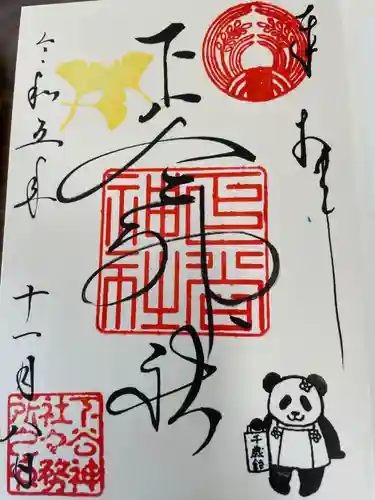 奉拝
下谷神社
下谷神社
令和五年
十一月八日
下谷神
社社務
所之印
千歳飴